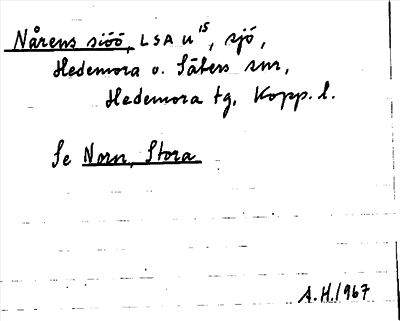 Nårens siöö, LSA u¹⁵, sjö,
Hedemora o. Säters snr,
Hedemora tg, Kopp. l.
Se Norn, Stora
A.H. 1967